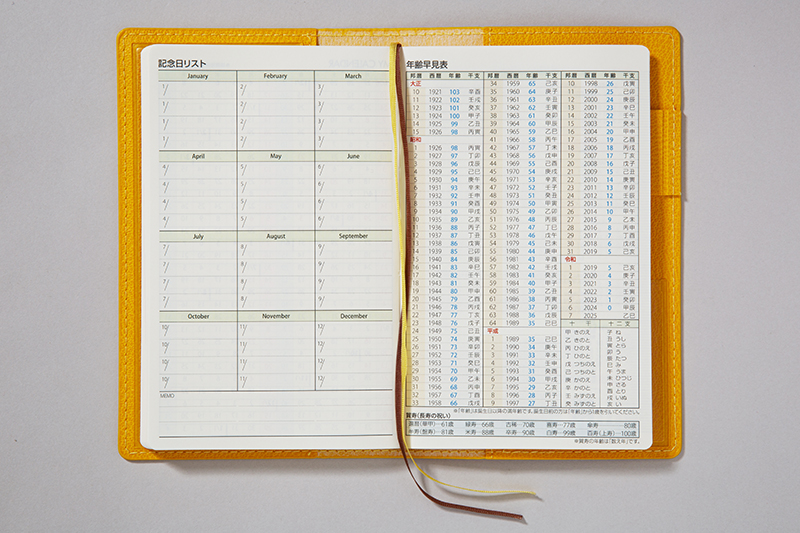 記念日リスト
January February March
1/ 2/ 3/
1/ 2/ 3/
1/ 2/ 3/
1/ 2/ 3/
April May June
4/ 5/ 6/
4/ 5/ 6/
4/ 5/ 6/
4/ 5/ 6/
July August September
7/ 8/ 9/
7/ 8/ 9/
7/ 8/ 9/
7/ 8/ 9/
October November December
10/ 11/ 12/
10/ 11/ 12/
10/ 11/ 12/
10/ 11/ 12/
MEMO
年齢早見表
邦暦 西暦 年齢 干支
大正
10 1921 103 辛酉
11 1922 102 壬戌
12 1923 101 癸亥
13 1924 100 甲子
14 1925 99 乙丑
15 1926 98 丙寅
昭和
1 1926 98 丙寅
2 1927 97 丁卯
3 1928 96 戊辰
4 1929 95 己巳
5 1930 94 庚午
6 1931 93 辛未
7 1932 92 壬申
8 1933 91 癸酉
9 1934 90 甲戌
10 1935 89 乙亥
11 1936 88 丙子
12 1937 87 丁丑
13 1938 86 戊寅
14 1939 85 己卯
15 1940 84 庚辰
16 1941 83 辛巳
17 1942 82 壬午
18 1943 81 癸未
19 1944 80 甲申
20 1945 79 乙酉
21 1946 78 丙戌
22 1947 77 丁亥
23 1948 76 戊子
24 1949 75 己丑
25 1950 74 庚寅
26 1951 73 辛卯
27 1952 72 壬辰
28 1953 71 癸巳
29 1954 70 甲午
30 1955 69 乙未
31 1956 68 丙申
32 1957 67 丁酉
33 1958 66 戊戌
邦暦 西暦 年齢 干支
34 1959 65 己亥
35 1960 64 庚子
36 1961 63 辛丑
37 1962 62 壬寅
38 1963 61 癸卯
39 1964 60 甲辰
40 1965 59 乙巳
41 1966 58 丙午
42 1967 57 丁未
43 1968 56 戊申
44 1969 55 己酉
45 1970 54 庚戌
46 1971 53 辛亥
47 1972 52 壬子
48 1973 51 癸丑
49 1974 50 甲寅
50 1975 49 乙卯
51 1976 48 丙辰
52 1977 47 丁巳
53 1978 46 戊午
54 1979 45 己未
55 1980 44 庚申
56 1981 43 辛酉
57 1982 42 壬戌
58 1983 41 癸亥
59 1984 40 甲子
60 1985 39 乙丑
61 1986 38 丙寅
62 1987 37 丁卯
63 1988 36 戊辰
64 1989 35 己巳
平成
1 1989 35 己巳
2 1990 34 庚午
3 1991 33 辛未
4 1992 32 壬申
5 1993 31 癸酉
6 1994 30 甲戌
7 1995 29 乙亥
8 1996 28 丙子
9 1997 27 丁丑
邦暦 西暦 年齢 干支
10 1998 26 戊寅
11 1999 25 己卯
12 2000 24 庚辰
13 2001 23 辛巳
14 2002 22 壬午
15 2003 21 癸未
16 2004 20 甲申
17 2005 19 乙酉
18 2006 18 丙戌
19 2007 17 丁亥
20 2008 16 戊子
21 2009 15 己丑
22 2010 14 庚寅
23 2011 13 辛卯
24 2012 12 壬辰
25 2013 11 癸巳
26 2014 10 甲午
27 2015 9 乙未
28 2016 8 丙申
29 2017 7 丁酉
30 2018 6 戊戌
31 2019 5 己亥
令和
1 2019 5 己亥
2 2020 4 庚子
3 2021 3 辛丑
4 2022 2 壬寅
5 2023 1 癸卯
6 2024 0 甲辰
7 2025 乙巳
十干 十二支
甲 きのえ 子 ね
乙 きのと 丑 うし
丙 ひのえ 寅 とら
丁 ひのと 卯 う
戊 つちのえ 辰 たつ
己 つちのと 巳 み
庚 かのえ 午 うま
辛 かのと 未 ひつじ
壬 みずのえ 申 さる
癸 みずのと 酉 とり
戌 いぬ
亥 い
※「年齢」は誕生日以降の満年齢です。誕生日前の方は「年齢」から1歳を引いてください。
賀寿(長寿の祝い)
還暦(華甲)―61歳 緑寿―66歳 古稀―70歳 喜寿―77歳 傘寿――80歳
半寿(盤寿)―81歳 米寿―88歳 卒寿―90歳 白寿―99歳 百寿(上寿)―100歳
※賀寿の年齢は「数え年」です。